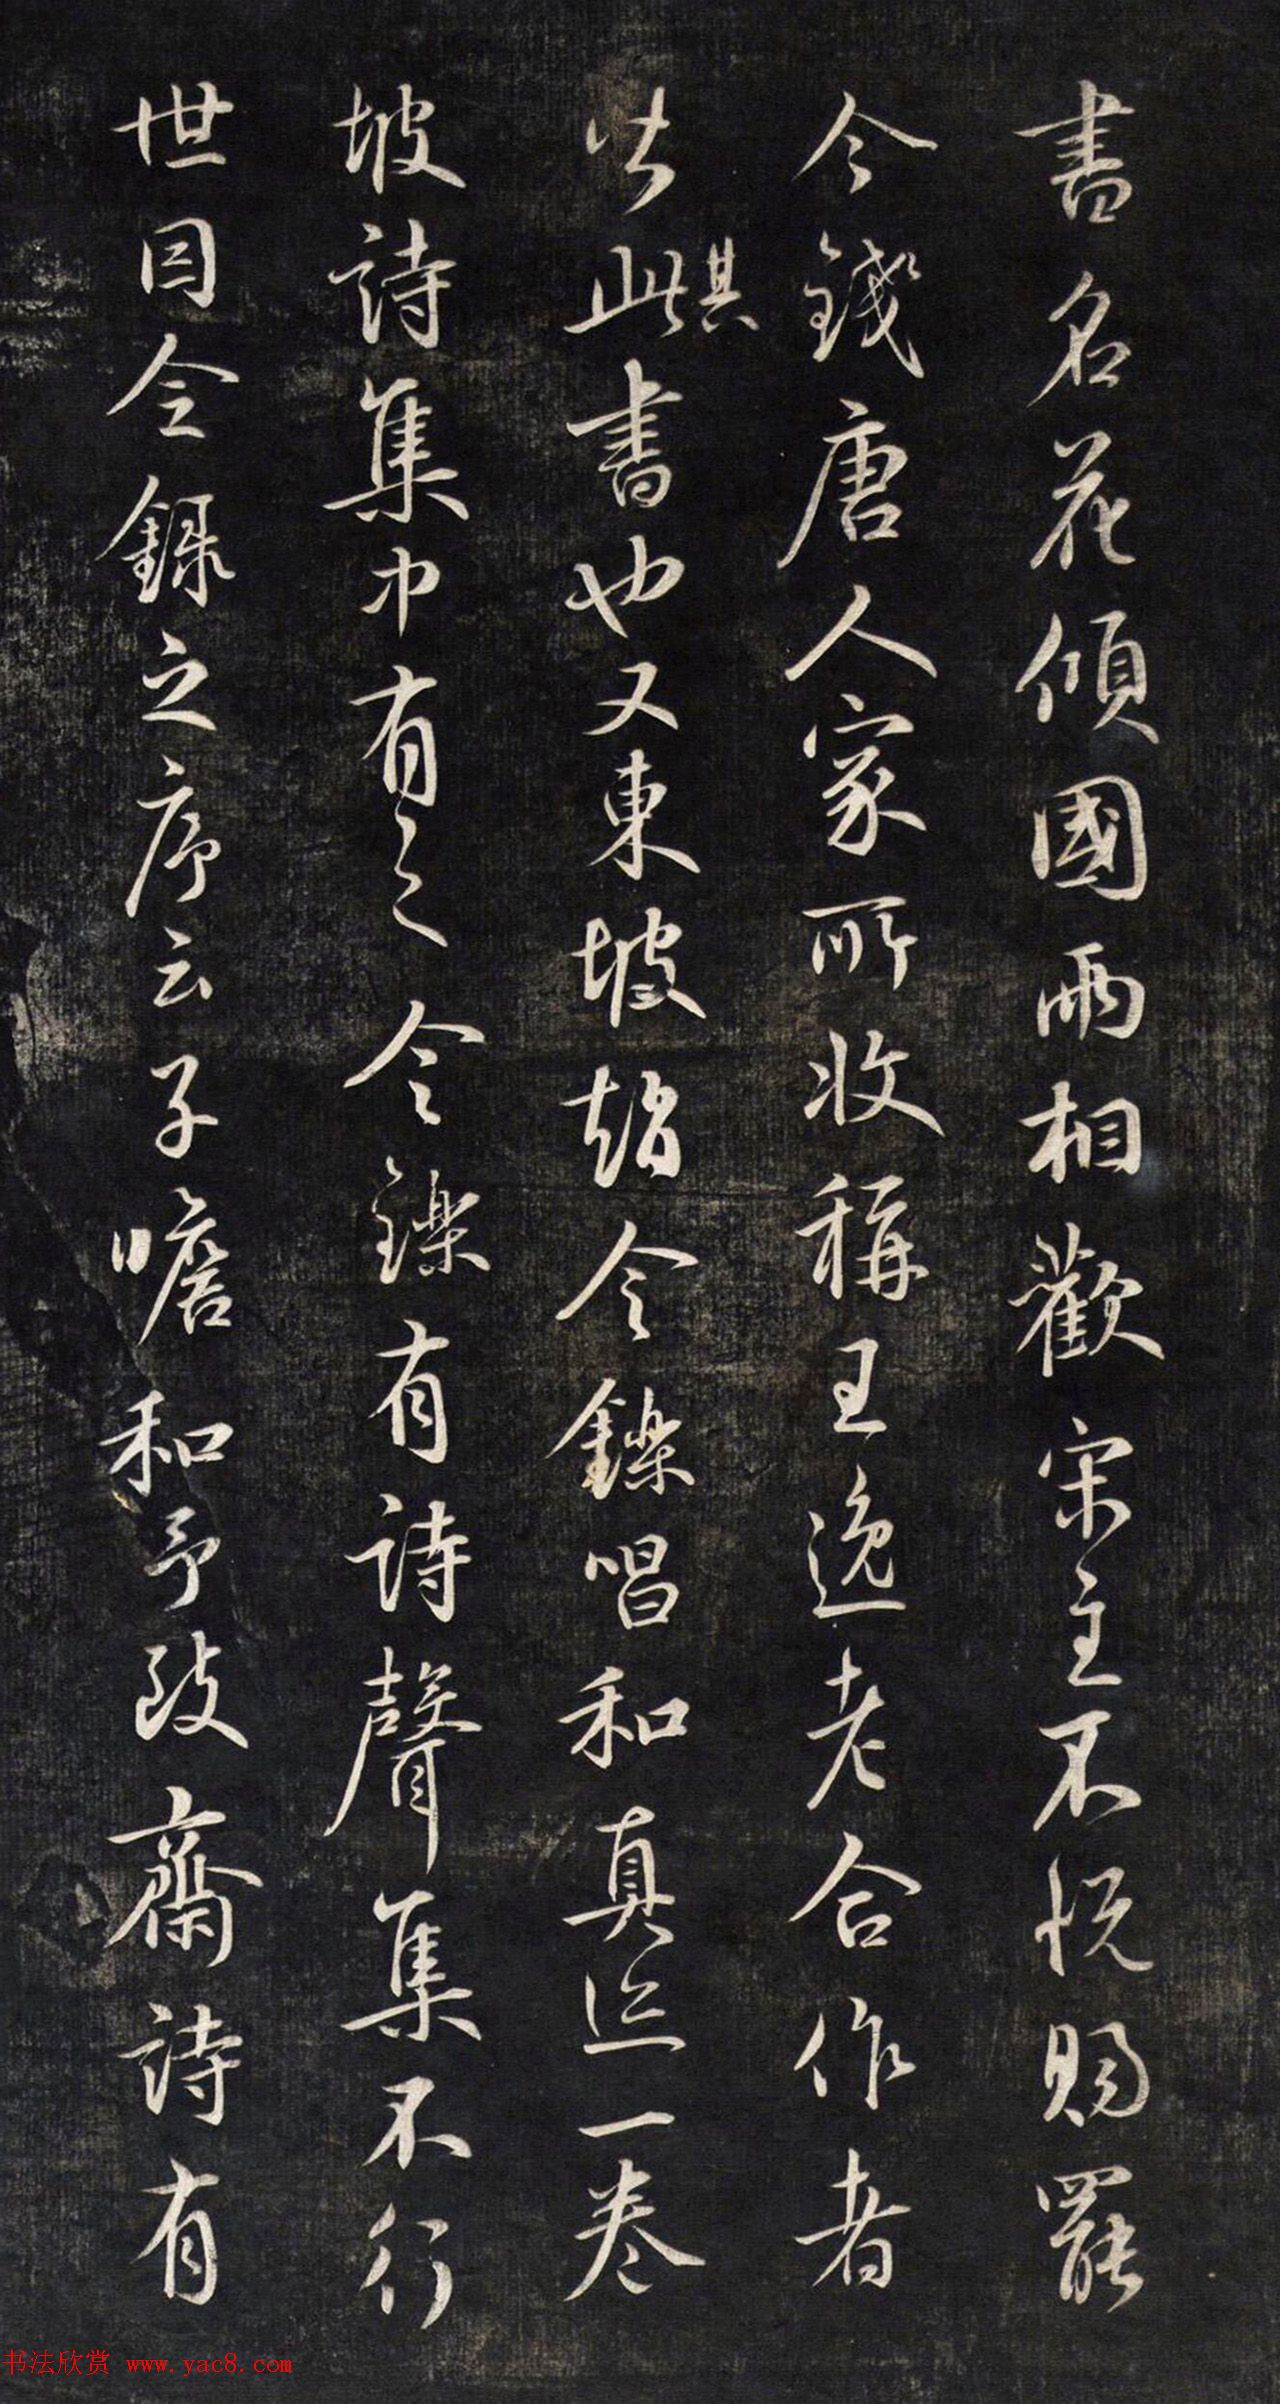 書名花傾國兩相歡宋主不悅賜罷
今錢唐人家所收稱王逸老合作者
皆此其書也又東坡趙令鑠唱和真迹一卷
坡詩集中有之令鑠有詩聲集不行
世因令錄之序云子瞻和予致齋詩有
书法欣赏 www.yac8.com